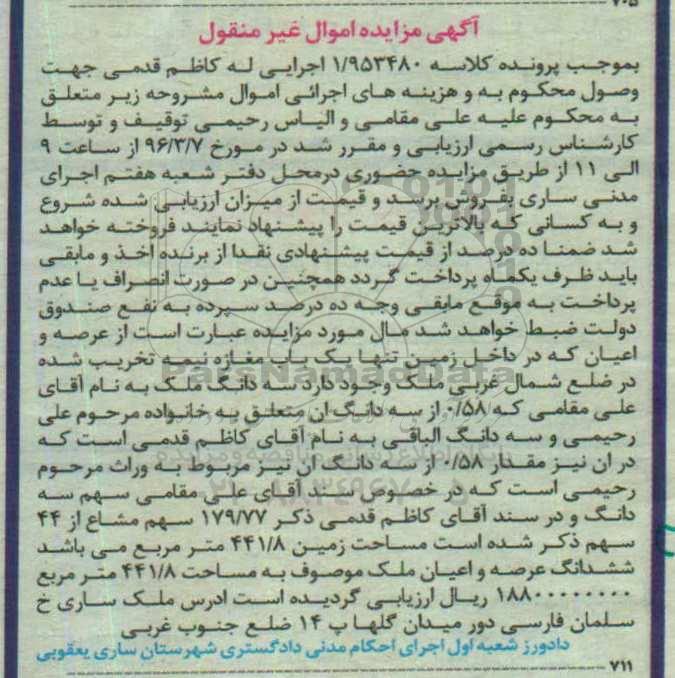 ۷۰۵
آگهی مزایده اموال غیر منقول
بموجب پرونده کلاسه ۱/۹۵۳۴۸۰ اجرایی له کاظم قدمی جهت
وصول محکوم به و هزینه های اجرائی اموال مشروحه زیر متعلق
به محکوم علیه علی مقامی و الیاس رحیمی توقیف و توسط
کارشناس رسمی ارزیابی و مقرر شد در مورخ ۹۶/۳/۷ از ساعت ۹
الی ۱۱ از طریق مزایده حضوری درمحل دفتر شعبه هفتم اجرای
مدنی ساری بفروش برسد و قیمت از میزان ارزیابی شده شروع
و به کسانی که بالاترین قیمت را پیشنهاد نمایند فروخته خواهد
شد ضمنا ده درصد از قیمت پیشنهادی نقدا از برنده اخذ و مابقی
باید ظرف یکماه پرداخت گردد همچنین در صورت انصراف یا عدم
پرداخت به موقع مابقی وجه ده درصد سپرده به نفع صندوق
دولت ضبط خواهد شد مال مورد مزایده عبارت است از عرصه و
اعیان که در داخل زمین تنها یک باب مغازه نیمه تخریب شده
در ضلع شمال غربی ملک وجود دارد سه دانگ ملک به نام آقای
علی مقامی که ۰/۵۸ از سه دانگ ان متعلق به خانواده مرحوم علی
رحیمی و سه دانگ الباقی به نام آقای کاظم قدمی است که
در ان نیز مقدار ۰/۵۸ از سه دانگ ان نیز مربوط به وراث مرحوم
رحیمی است که در خصوص سند آقای علی مقامی سهم سه
دانگ و در سند آقای کاظم قدمی ذکر ۱۷۹/۷۷ سهم مشاع از ۴۴
سهم ذکر شده است مساحت زمین ۴۴۱/۸ متر مربع می باشد
ششدانگ عرصه و اعیان ملک موصوف به مساحت ۴۴۱/۸ متر مربع
۱۸۸۰۰۰۰۰۰۰۰ ریال ارزیابی گردیده است ادرس ملک ساری خ
سلمان فارسی دور میدان گلها پ ۱۴ ضلع جنوب غربی
دادورز شعبه اول اجرای احکام مدنی دادگستری شهرستان ساری یعقوبی
۷۱۱
ParsNamadData